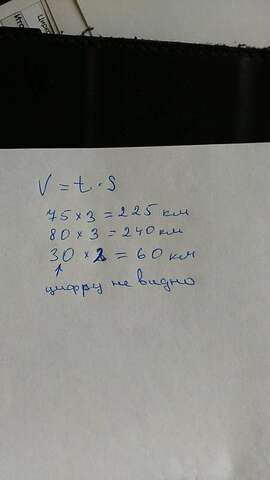 V = t · S
75 × 3 = 225 км
80 × 3 = 240 км
30 × 2 = 60 км
↑
цифру не видно